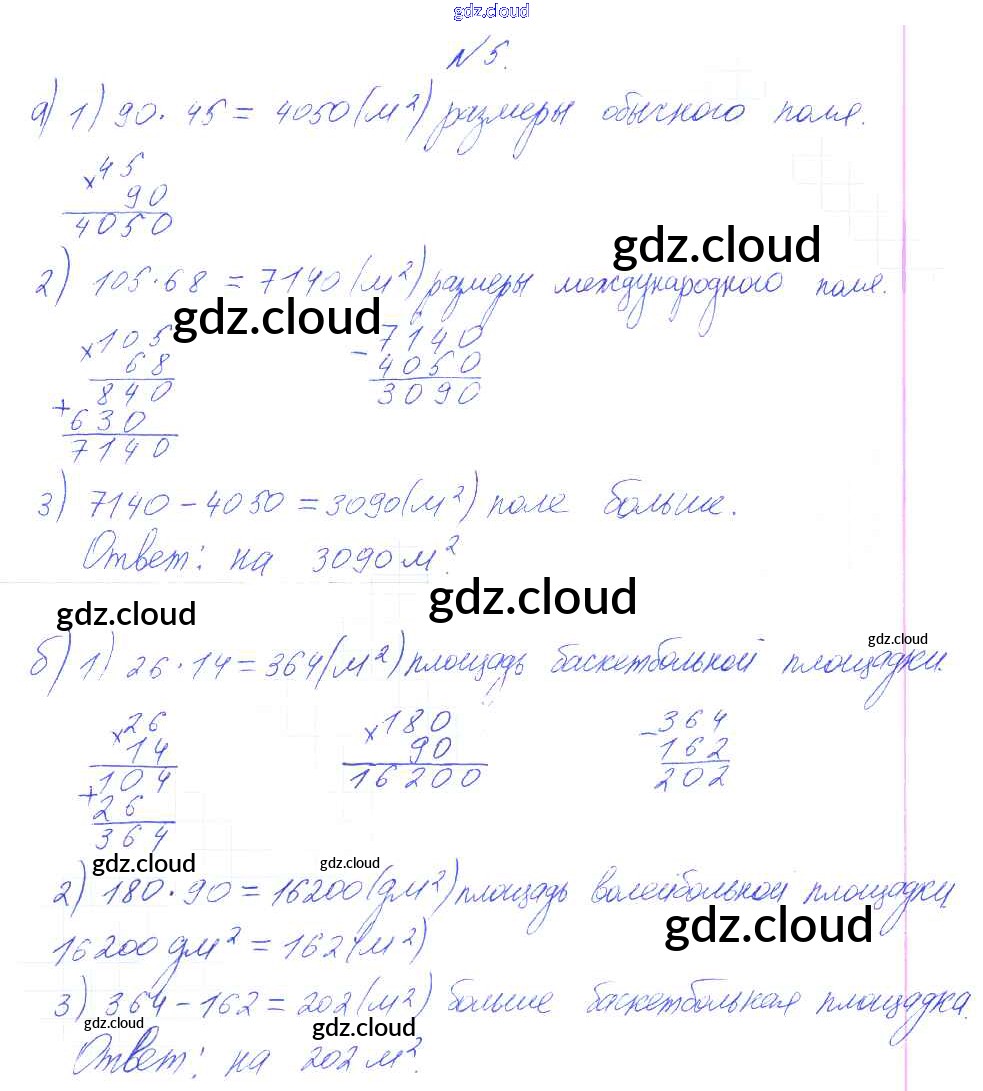 gdz.cloud
N 5.
а) 1) 90 · 45 = 4050 (м²) размеры обычного поля.
× 45
90
4050
gdz.cloud
2) 105 · 68 = 7140 (м²) размеры международного поля.
gdz.cloud
× 105
68
840
+ 630
7140
− 7140
4050
3090
3) 7140 − 4050 = 3090 (м²) поле больше.
Ответ: на 3090 м².
gdz.cloud
gdz.cloud
gdz.cloud
б) 1) 26 · 14 = 364 (м²) площадь баскетбольной площадки.
× 26
14
104
+ 26
364
× 180
90
16200
− 364
162
202
gdz.cloud
gdz.cloud
2) 180 · 90 = 16200 (дм²) площадь волейбольной площадки
gdz.cloud
16200 дм² = 162 (м²)
3) 364 − 162 = 202 (м²) больше баскетбольная площадка.
gdz.cloud
gdz.cloud
Ответ: на 202 м².